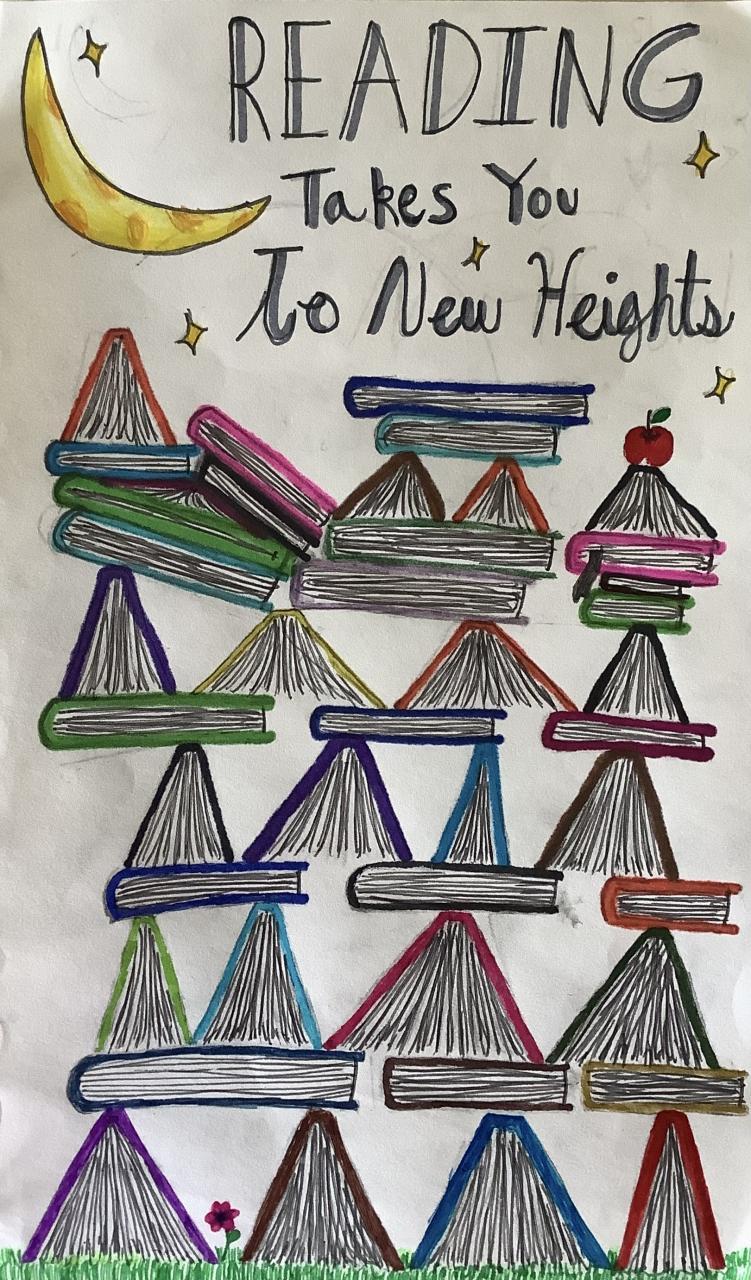 READING
Takes You
To New Heights